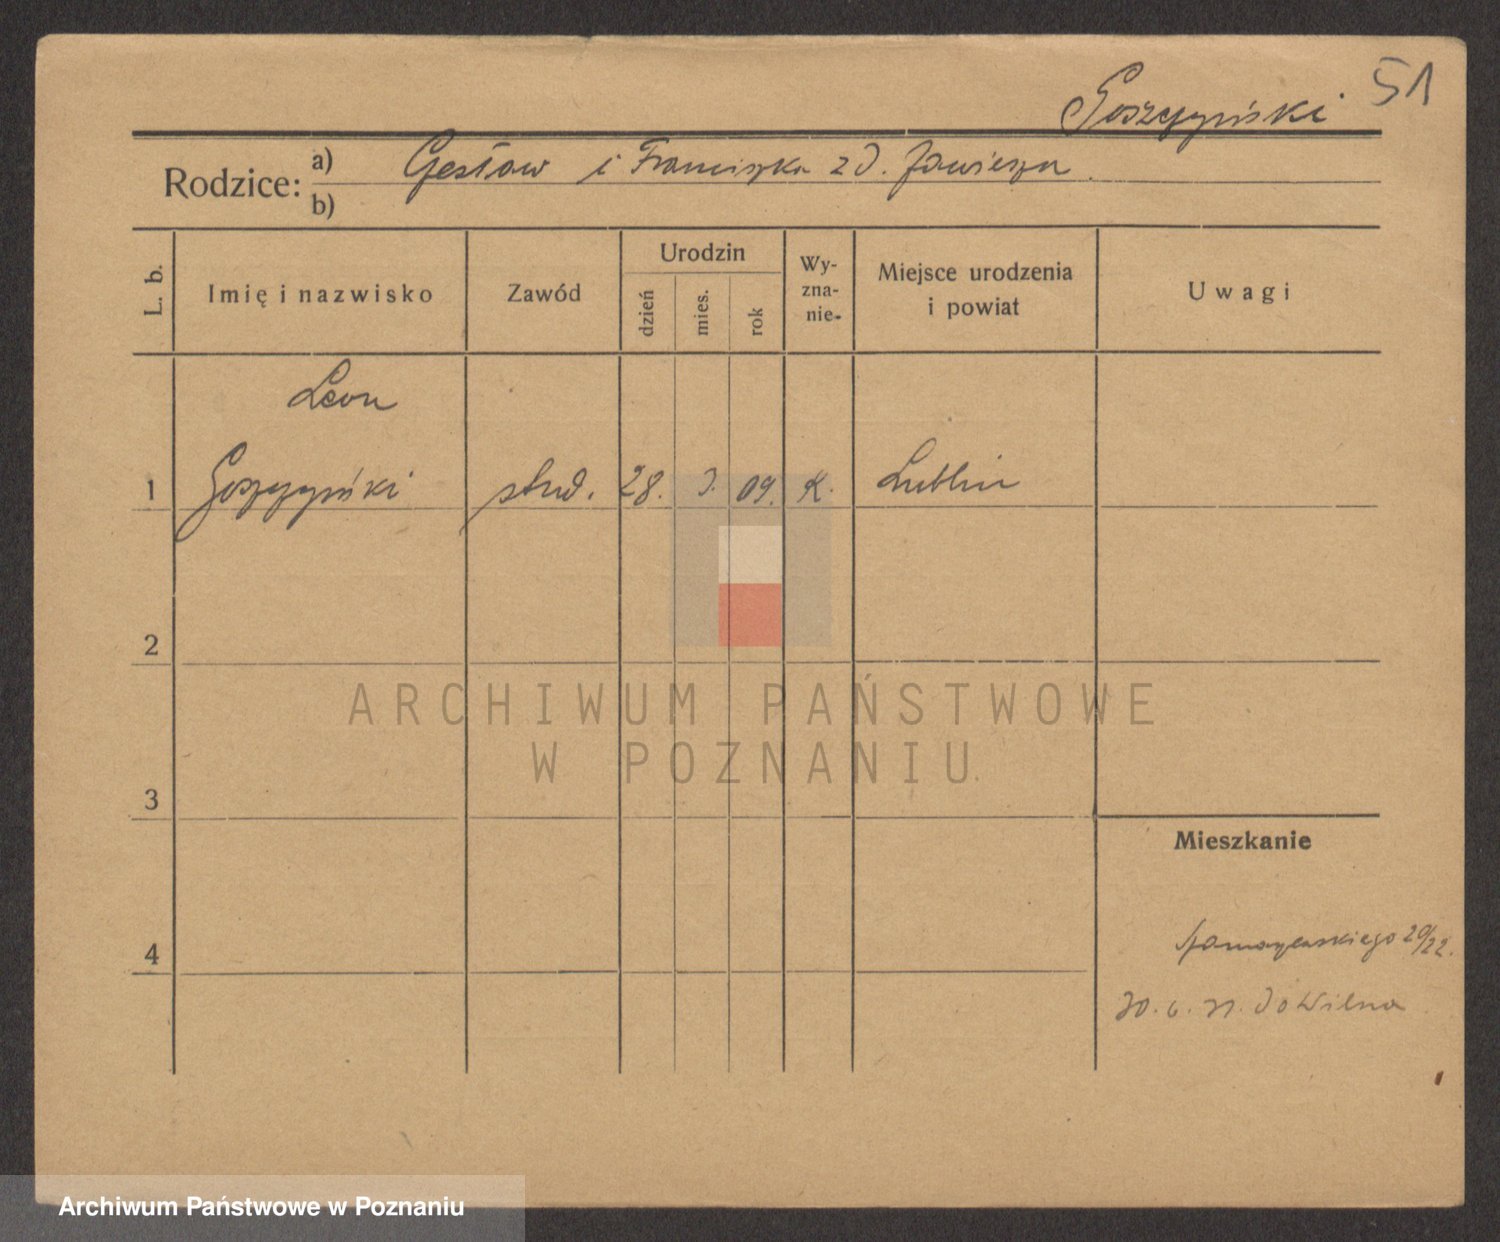 Goszczyński 51
Rodzice: a) Czesław i Franciszka z d.
b)
L. b.
Imię i nazwisko
Zawód
Urodzin
dzień
mies.
rok
Wy-
zna-
nie.
Miejsce urodzenia
i powiat
Uwagi
Leon
1 Goszczyński stud. 28. I. 09. K. Lublin
2
ARCHIWUM PAŃSTWOWE
W POZNANIU
3
Mieszkanie
4
20/22.
30. 6. 31. do Wilna
Archiwum Państwowe w Poznaniu